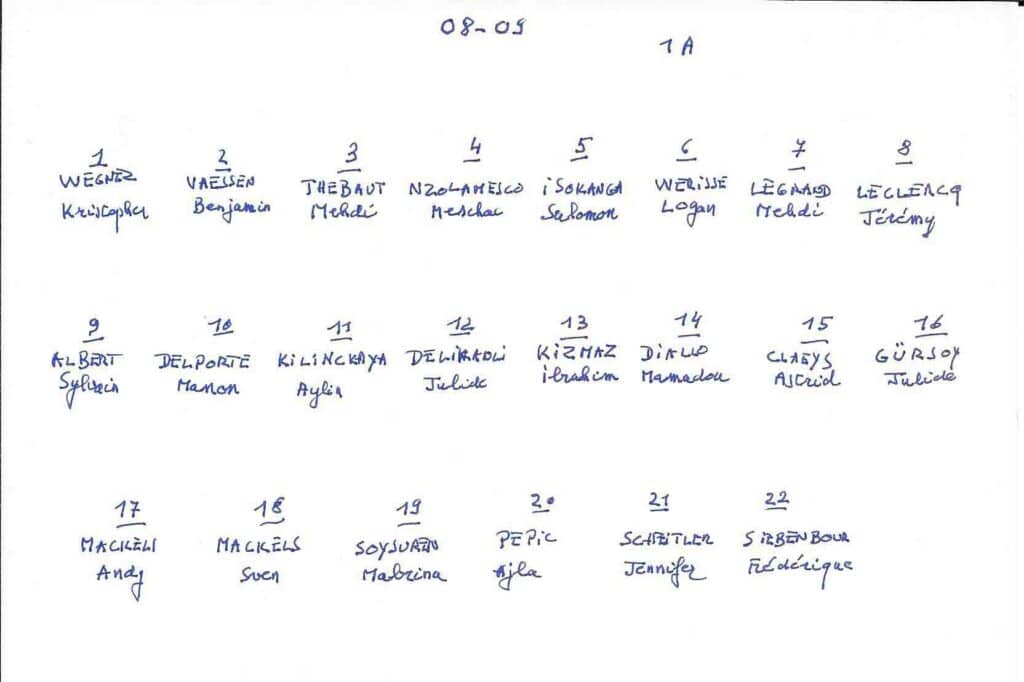 08-09
1A
1 2 3 4 5 6 7 8
WEGNEZ VAESSEN THEBAUT NZOLAMESCO iSOKANGA WERiSSE LEGRAND LECLERCQ
Kristopher Benjamin Mehdi Meschac Salomon Logan Mehdi Jérémy
9 10 11 12 13 14 15 16
ALBERT DELPORTE KiLiNCKAYA KiZMAZ DiALLO CLAEYS GÜRSOY
Sylvain Manon Aylin Julide ibrahim Mamadou Astrid Julide
17 18 19 20 21 22
MACKELS MACKELS SOYSUREN PEPiC
Andy Sven Mabrina Ajla Jennifer Frédérique